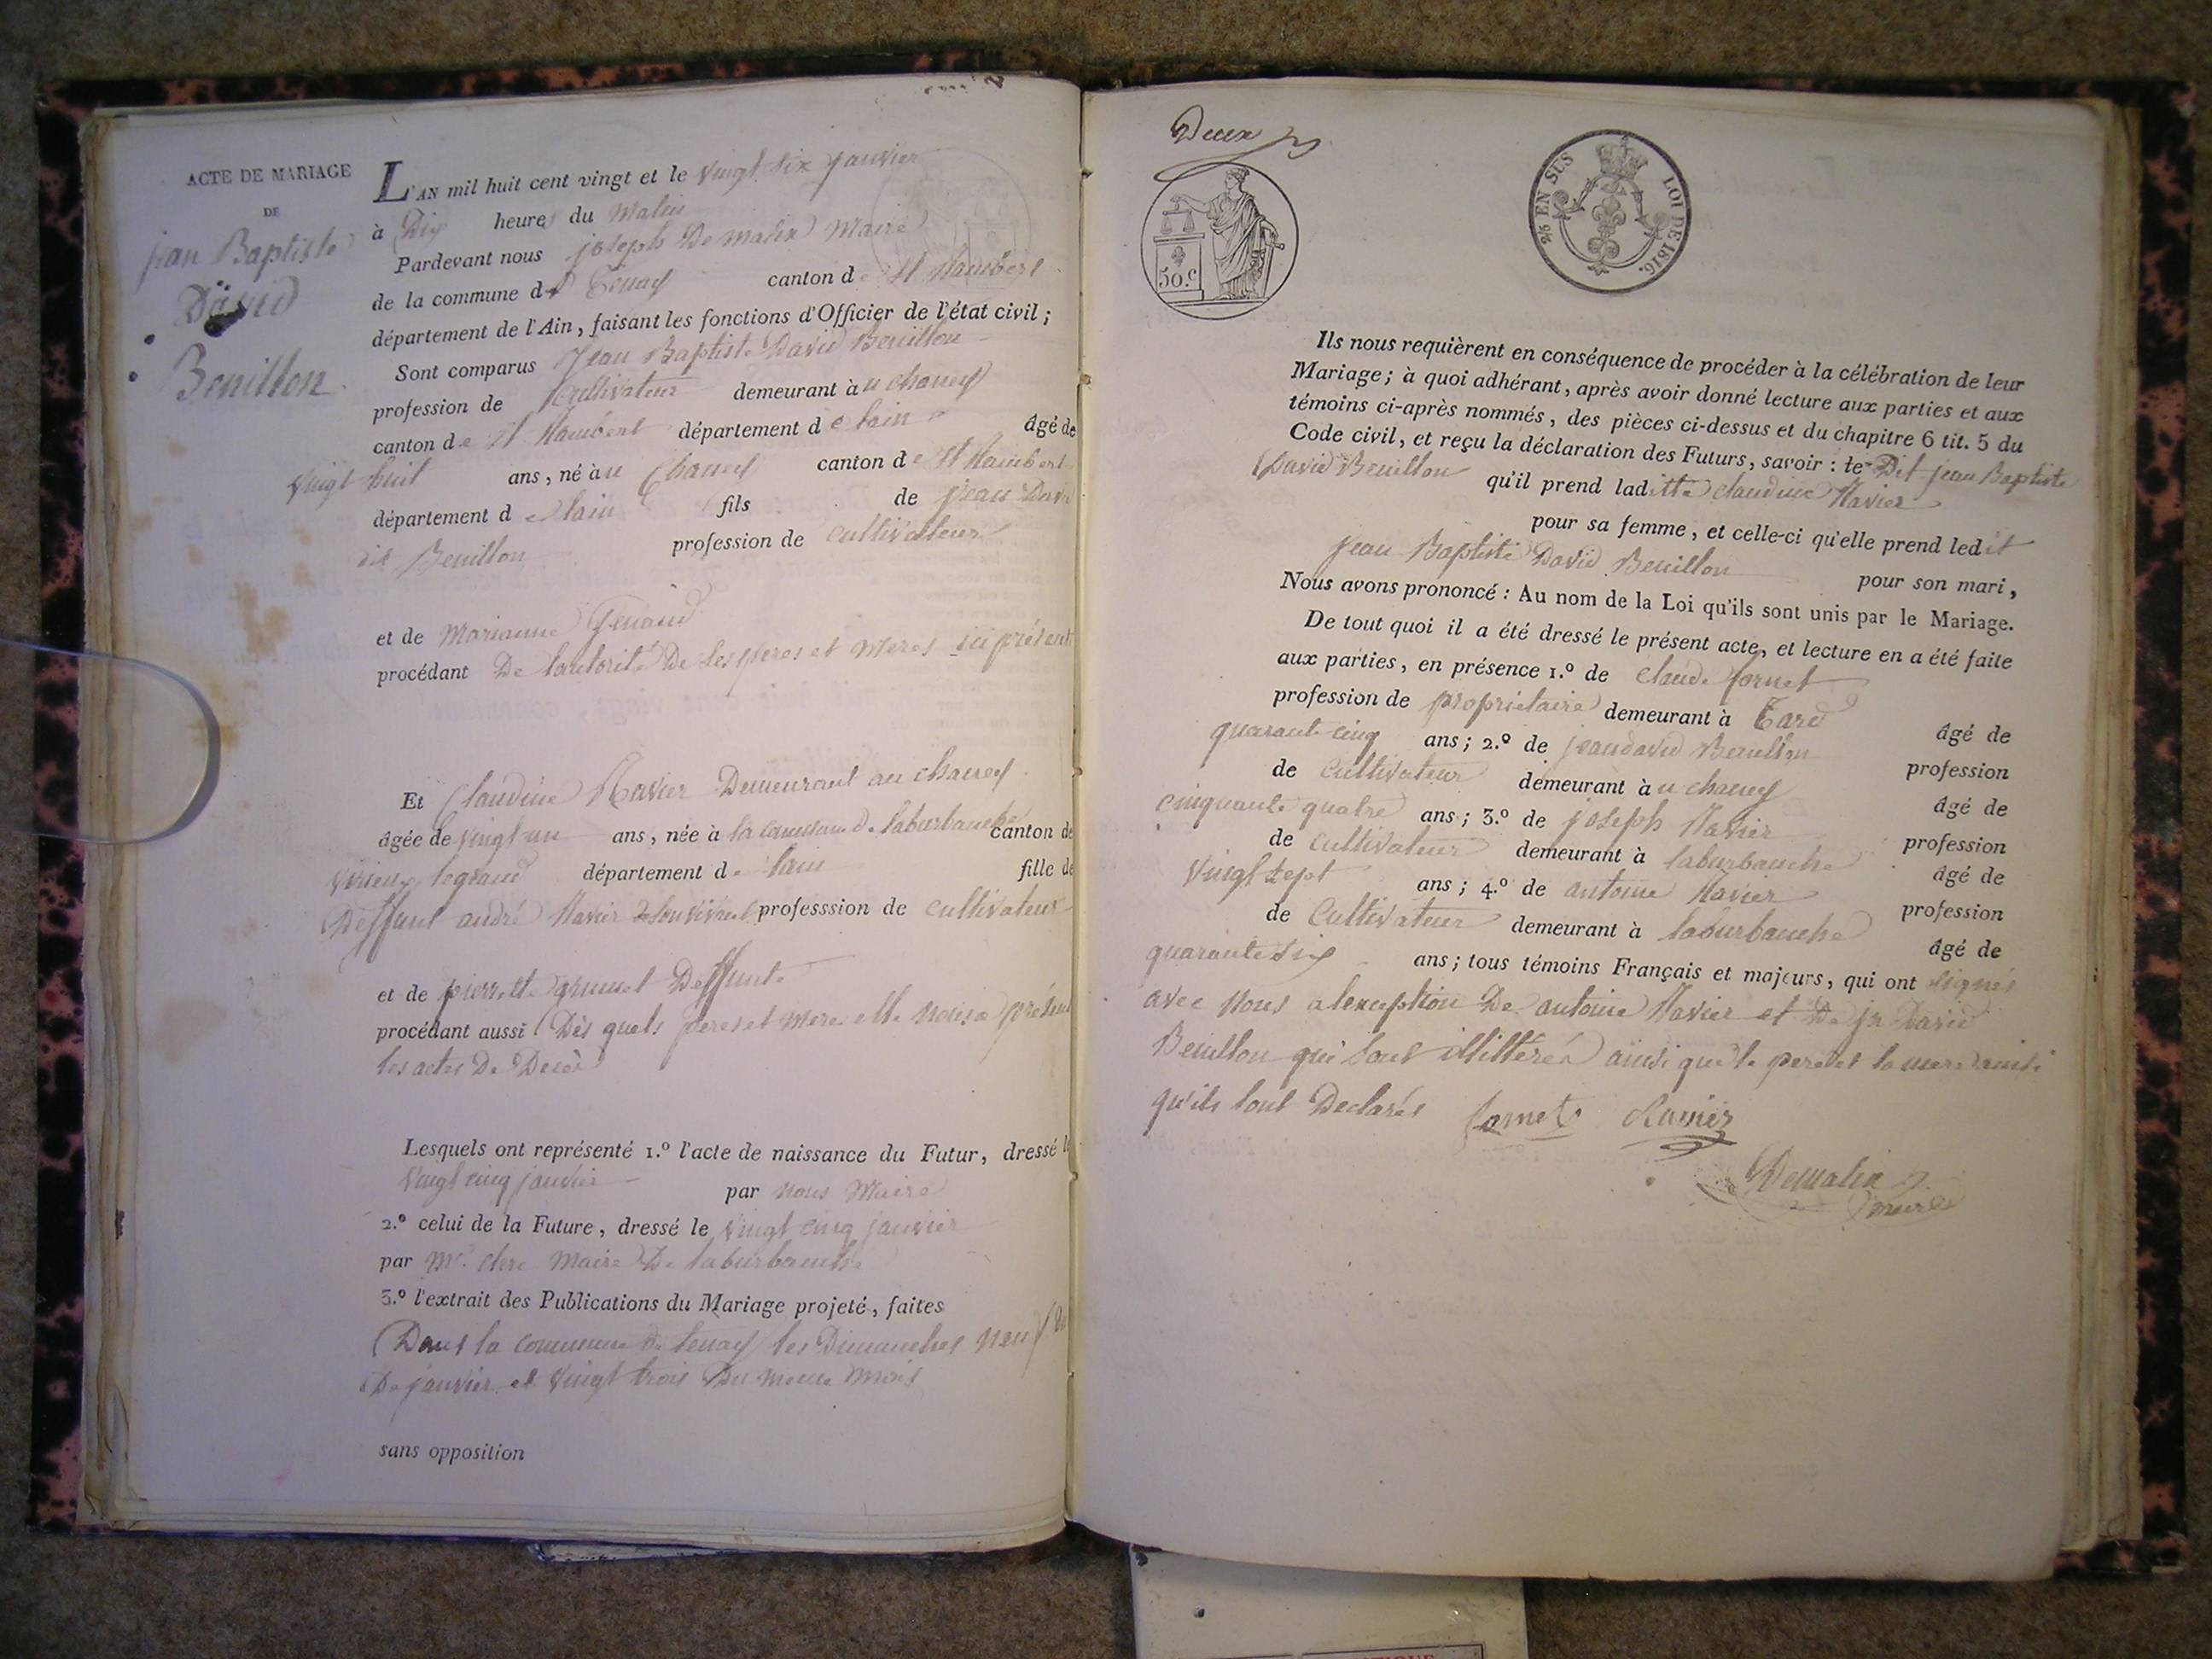 ACTE DE MARIAGE
DE
jean Baptiste
David
Beuillon
L'AN mil huit cent vingt et le vingt six janvier
à Dix heures du matin
Pardevant nous joseph De malix Maire
de la commune de Tenay canton de St Rambert
département de l'Ain, faisant les fonctions d'Officier de l'état civil;
Sont comparus Jean Baptiste David Beuillon
profession de Cultivateur demeurant àu chaney
canton de St Rambert département de lain âgé de
vingt huit ans, né àu Chaney canton de St Rambert
département de lain fils de jean David
dit Beuillon profession de cultivateur
et de Marianne
procédant De lautorité De ses peres et meres ici présent
Et Claudine Ravier Demeurant au chaney
âgée de vingt un ans, née à la commune de laburbanche canton de
virieux legrand département de lain fille de
Deffunt andré Ravier profession de cultivateur
et de pierrette Deffunte
procédant aussi Dès quels peres et mere elle nous a présenté
les actes De Decès
Lesquels ont représenté 1.º l'acte de naissance du Futur, dressé le
vingt cinq janvier par nous Maire
2.º celui de la Future, dressé le vingt cinq janvier
par Mr. maire De laburbanche
3.º l'extrait des Publications du Mariage projeté, faites
Dans la commune de tenay les Dimanches neuf
De janvier et vingt trois Du meme mois
sans opposition
Deux
50.C
25 EN SUS LOI DE 1816.
Ils nous requièrent en conséquence de procéder à la célébration de leur
Mariage; à quoi adhérant, après avoir donné lecture aux parties et aux
témoins ci-après nommés, des pièces ci-dessus et du chapitre 6 tit. 5 du
Code civil, et reçu la déclaration des Futurs, savoir: le Dit jean Baptiste
David Beuillon qu'il prend laditte claudine Ravier
pour sa femme, et celle-ci qu'elle prend ledit
jean Baptiste David Beuillon pour son mari,
Nous avons prononcé: Au nom de la Loi qu'ils sont unis par le Mariage.
De tout quoi il a été dressé le présent acte, et lecture en a été faite
aux parties, en présence 1.º de claude fornet
profession de proprietaire demeurant à âgé de
quarante cinq ans; 2.º de jean david Beuillon profession
de cultivateur demeurant àu chaney âgé de
cinquante quatre ans; 3.º de joseph Ravier profession
de cultivateur demeurant à laburbanche âgé de
vingt sept ans; 4.º de antoine Ravier profession
de Cultivateur demeurant à laburbanche âgé de
quarante six ans; tous témoins Français et majeurs, qui ont signés
avec nous alexception De antoine Ravier et De jn David
Beuillon qui sont illittérés ainsi que le pere et la mere ainsi
qu'ils sont Declarés fornet Ravier
Demalix
maire